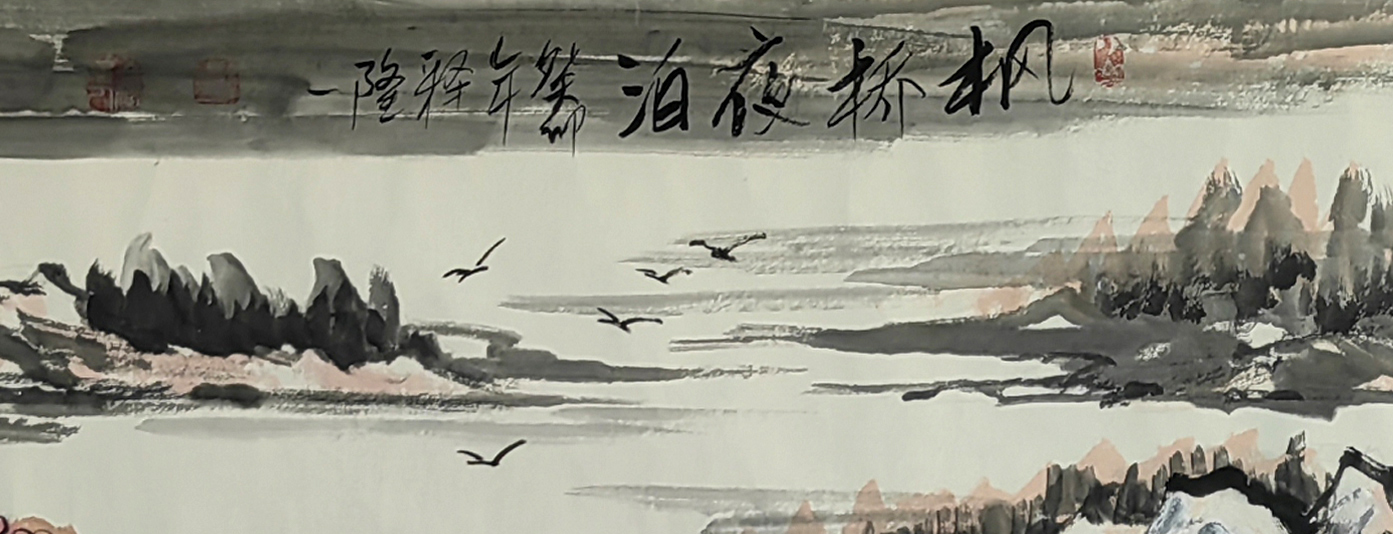 枫桥夜泊 癸卯年 释隆一